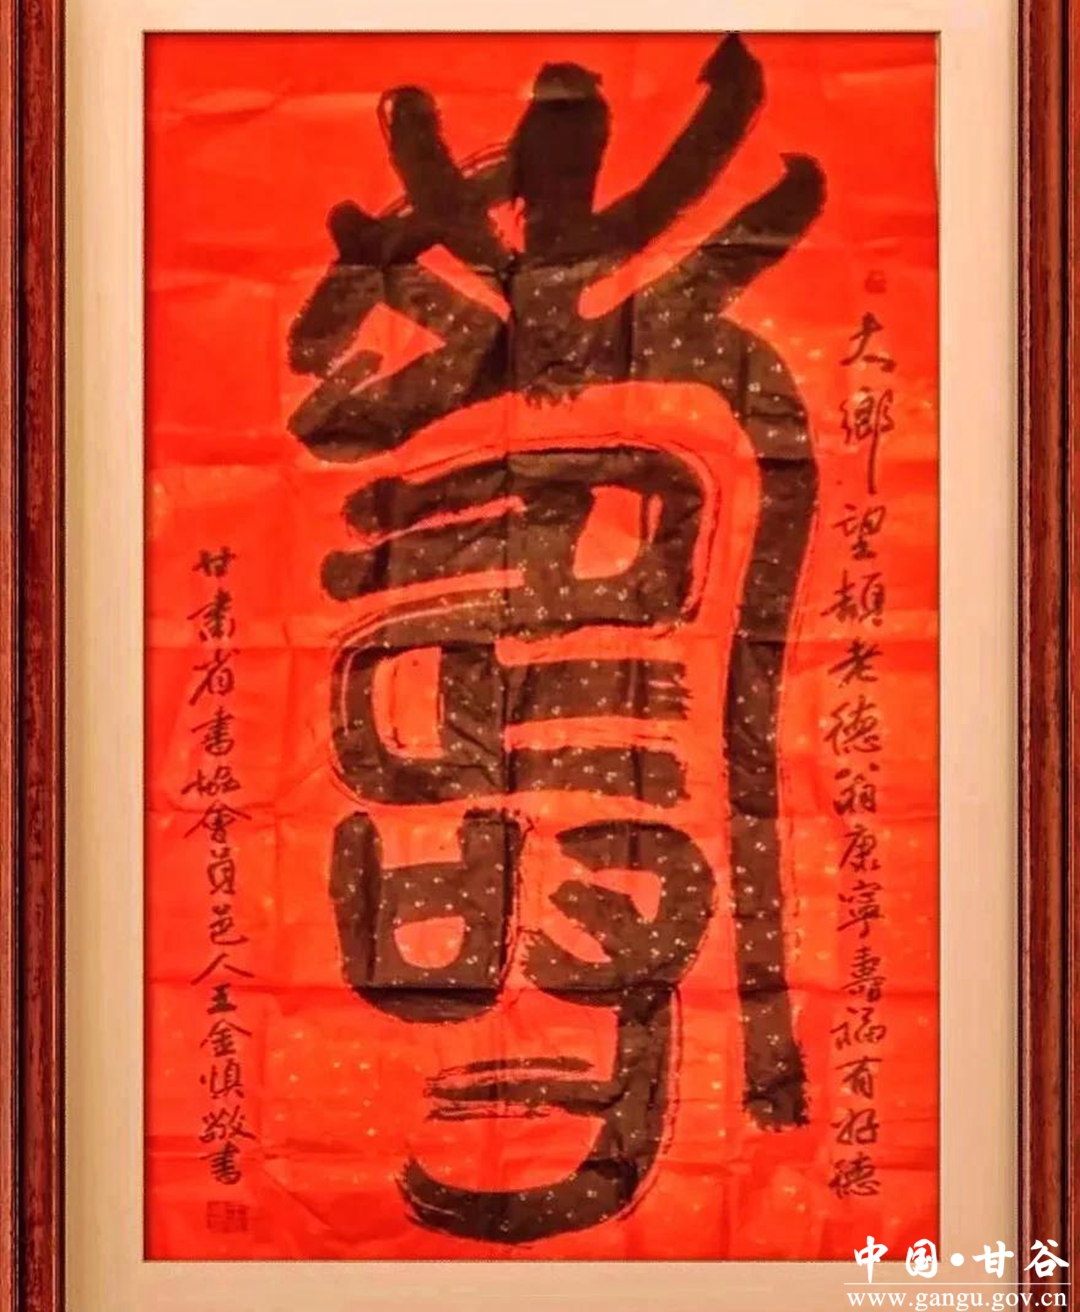 壽
大鄉望頡老德翁康寧壽福有好德
甘肅省書協會員邑人王金慎敬書
中国·甘谷
www.gangu.gov.cn